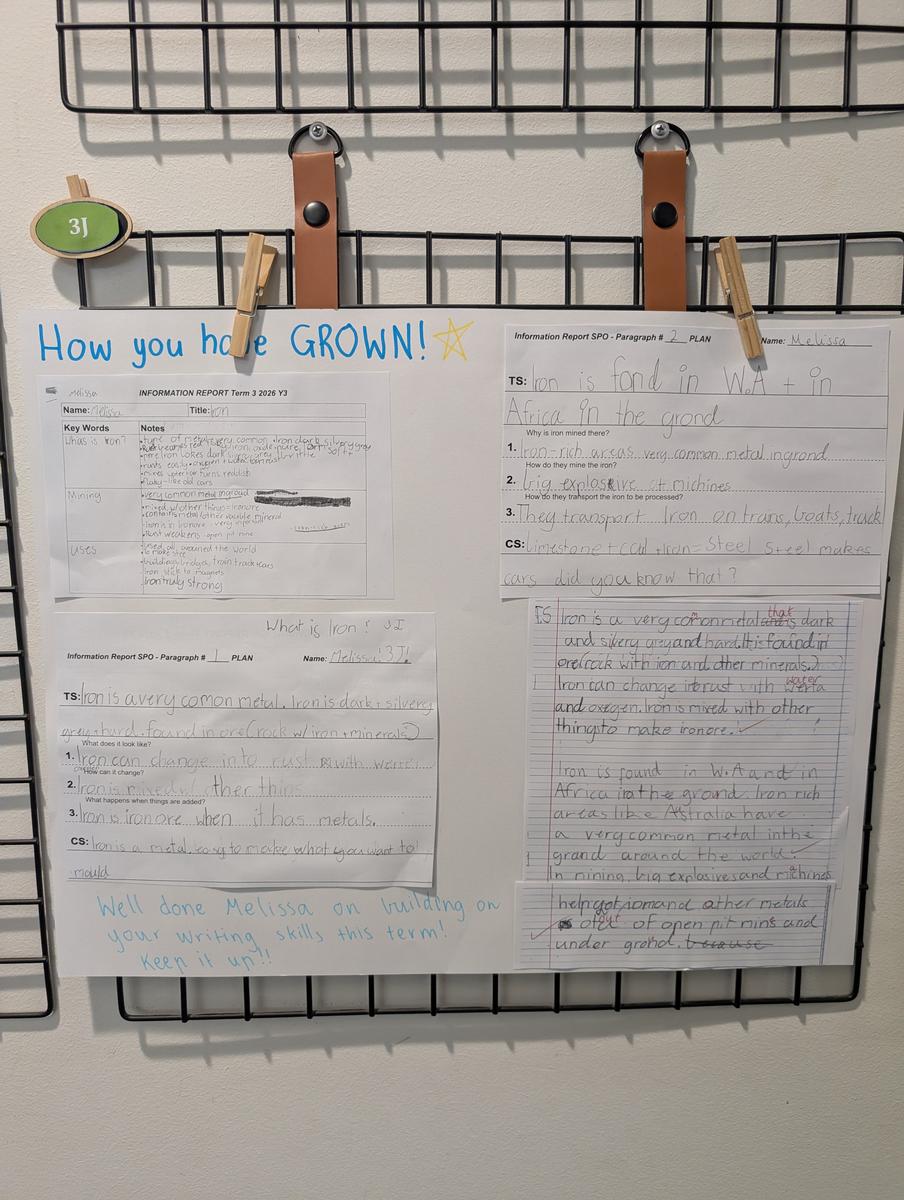 3J
How you have GROWN!
Melissa
INFORMATION REPORT Term 3 2026 Y3
Name: Melissa Title: Iron
Key Words Notes
What is Iron?
•type of metal •very common •Iron dark silvery grey
•rusts easily •oxegen + water turn rust
turns reddish
•flaky-like old cars
Mining
•very common metal inground
•mixed w/other things=Ironore
•contains metal/other valuble mineral
•Iron is in Ironore
•Rust weakens •open pit mine
Uses
•used all around the world
•to make
•buildings, bridges, train track+cars
Iron stick to magnets
Iron truly strong
What is Iron? JI
Information Report SPO - Paragraph # 1 PLAN Name: Melissa! 3J!
TS: Iron is a very comon metal. Iron is dark + silvery
grey + hard. found in ore(rock w/ iron + minerals)
What does it look like?
1. Iron can change in to rust with werte
How can it change?
2. Iron is mixed w/ other thin
What happens when things are added?
3. Iron is iron ore when it has metals.
CS: Iron is a metal. easy to make what you want to
mould
Well done Melissa on building on
your writing skills this term!
Keep it up!!
Information Report SPO - Paragraph # 2 PLAN Name: Melissa
TS: Iron is fond in W.A + in
Africa in the grond
Why is iron mined there?
1. Iron-rich areas very common metal ingrond
How do they mine the iron?
2. big explosive + machines
How do they transport the iron to be processed?
3. They transport Iron on trans, boats, truck
CS: limestone + coal + Iron = Steel Steel makes
cars did you know that?
TS Iron is a very comon metal that is dark
and silvery grey and hard. It is found in
ore(rock with iron and other minerals.)
water
Iron can change into rust with werta
and oxegen. Iron is mixed with other
things to make iron ore.
Iron is found in W.A and in
Africa in the ground. Iron rich
areas like Australia have
a very common metal in the
grand around the world.
In mining, big explosives and machines
help get iron and other metals
out of open pit mins and
under grond. because